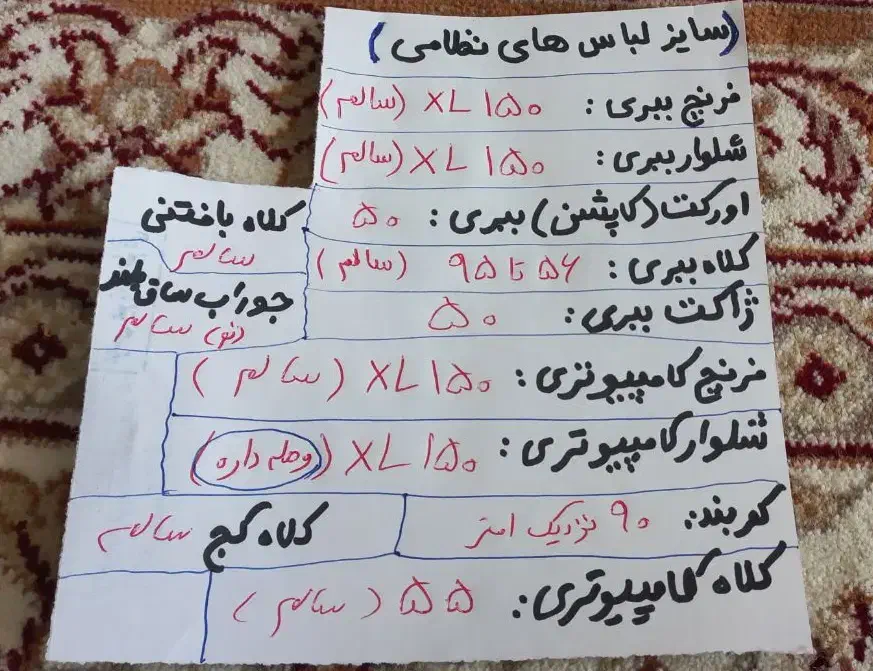 (سایز لباس های نظامی)
فرنچ ببری: XL ۱۵۰ (سالم)
شلوار ببری: XL ۱۵۰ (سالم)
اورکت (کاپشن) ببری: ۵۰
کلاه ببری: ۵۶ تا ۹۵ (سالم)
ژاکت ببری: ۵۰
فرنچ کامپیوتری: XL ۱۵۰ (سالم)
شلوار کامپیوتری: XL ۱۵۰ (وصله داره)
کمربند: ۹۰ نزدیک ۱متر
کلاه کج سالم
کلاه کامپیوتری: ۵۵ (سالم)
کلاه بافتنی
سالم
جوراب ساق بلند
(نو) سالم